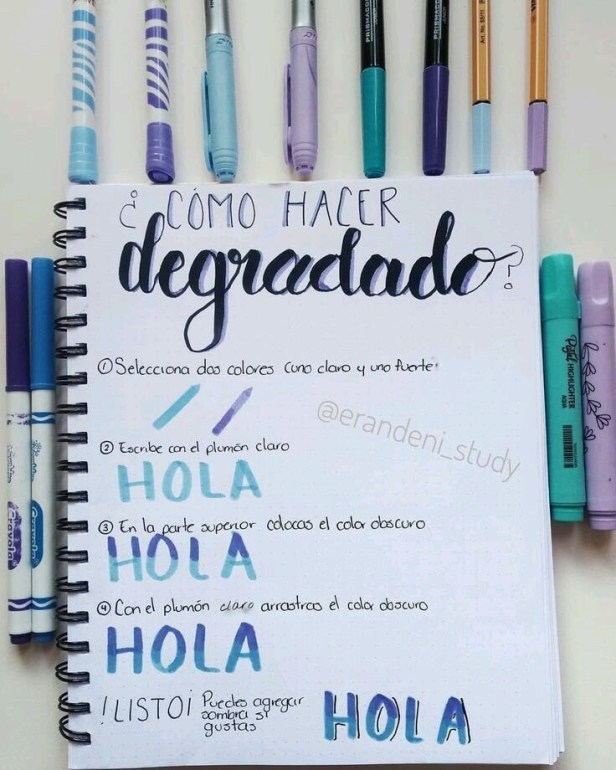 ¿CÓMO HACER
degradado?
① Selecciona dos colores (uno claro y uno fuerte
@erandeni_study
② Escribe con el plumón claro
HOLA
③ En la parte superior colocas el color obscuro
HOLA
④ Con el plumón claro arrastras el color obscuro
HOLA
!LISTO¡
Puedes agregar
sombra si
gustas
HOLA
PRISMACOLOR
PRISMACOLOR
Crayola
Crayola
Pastel HIGHLIGHTER